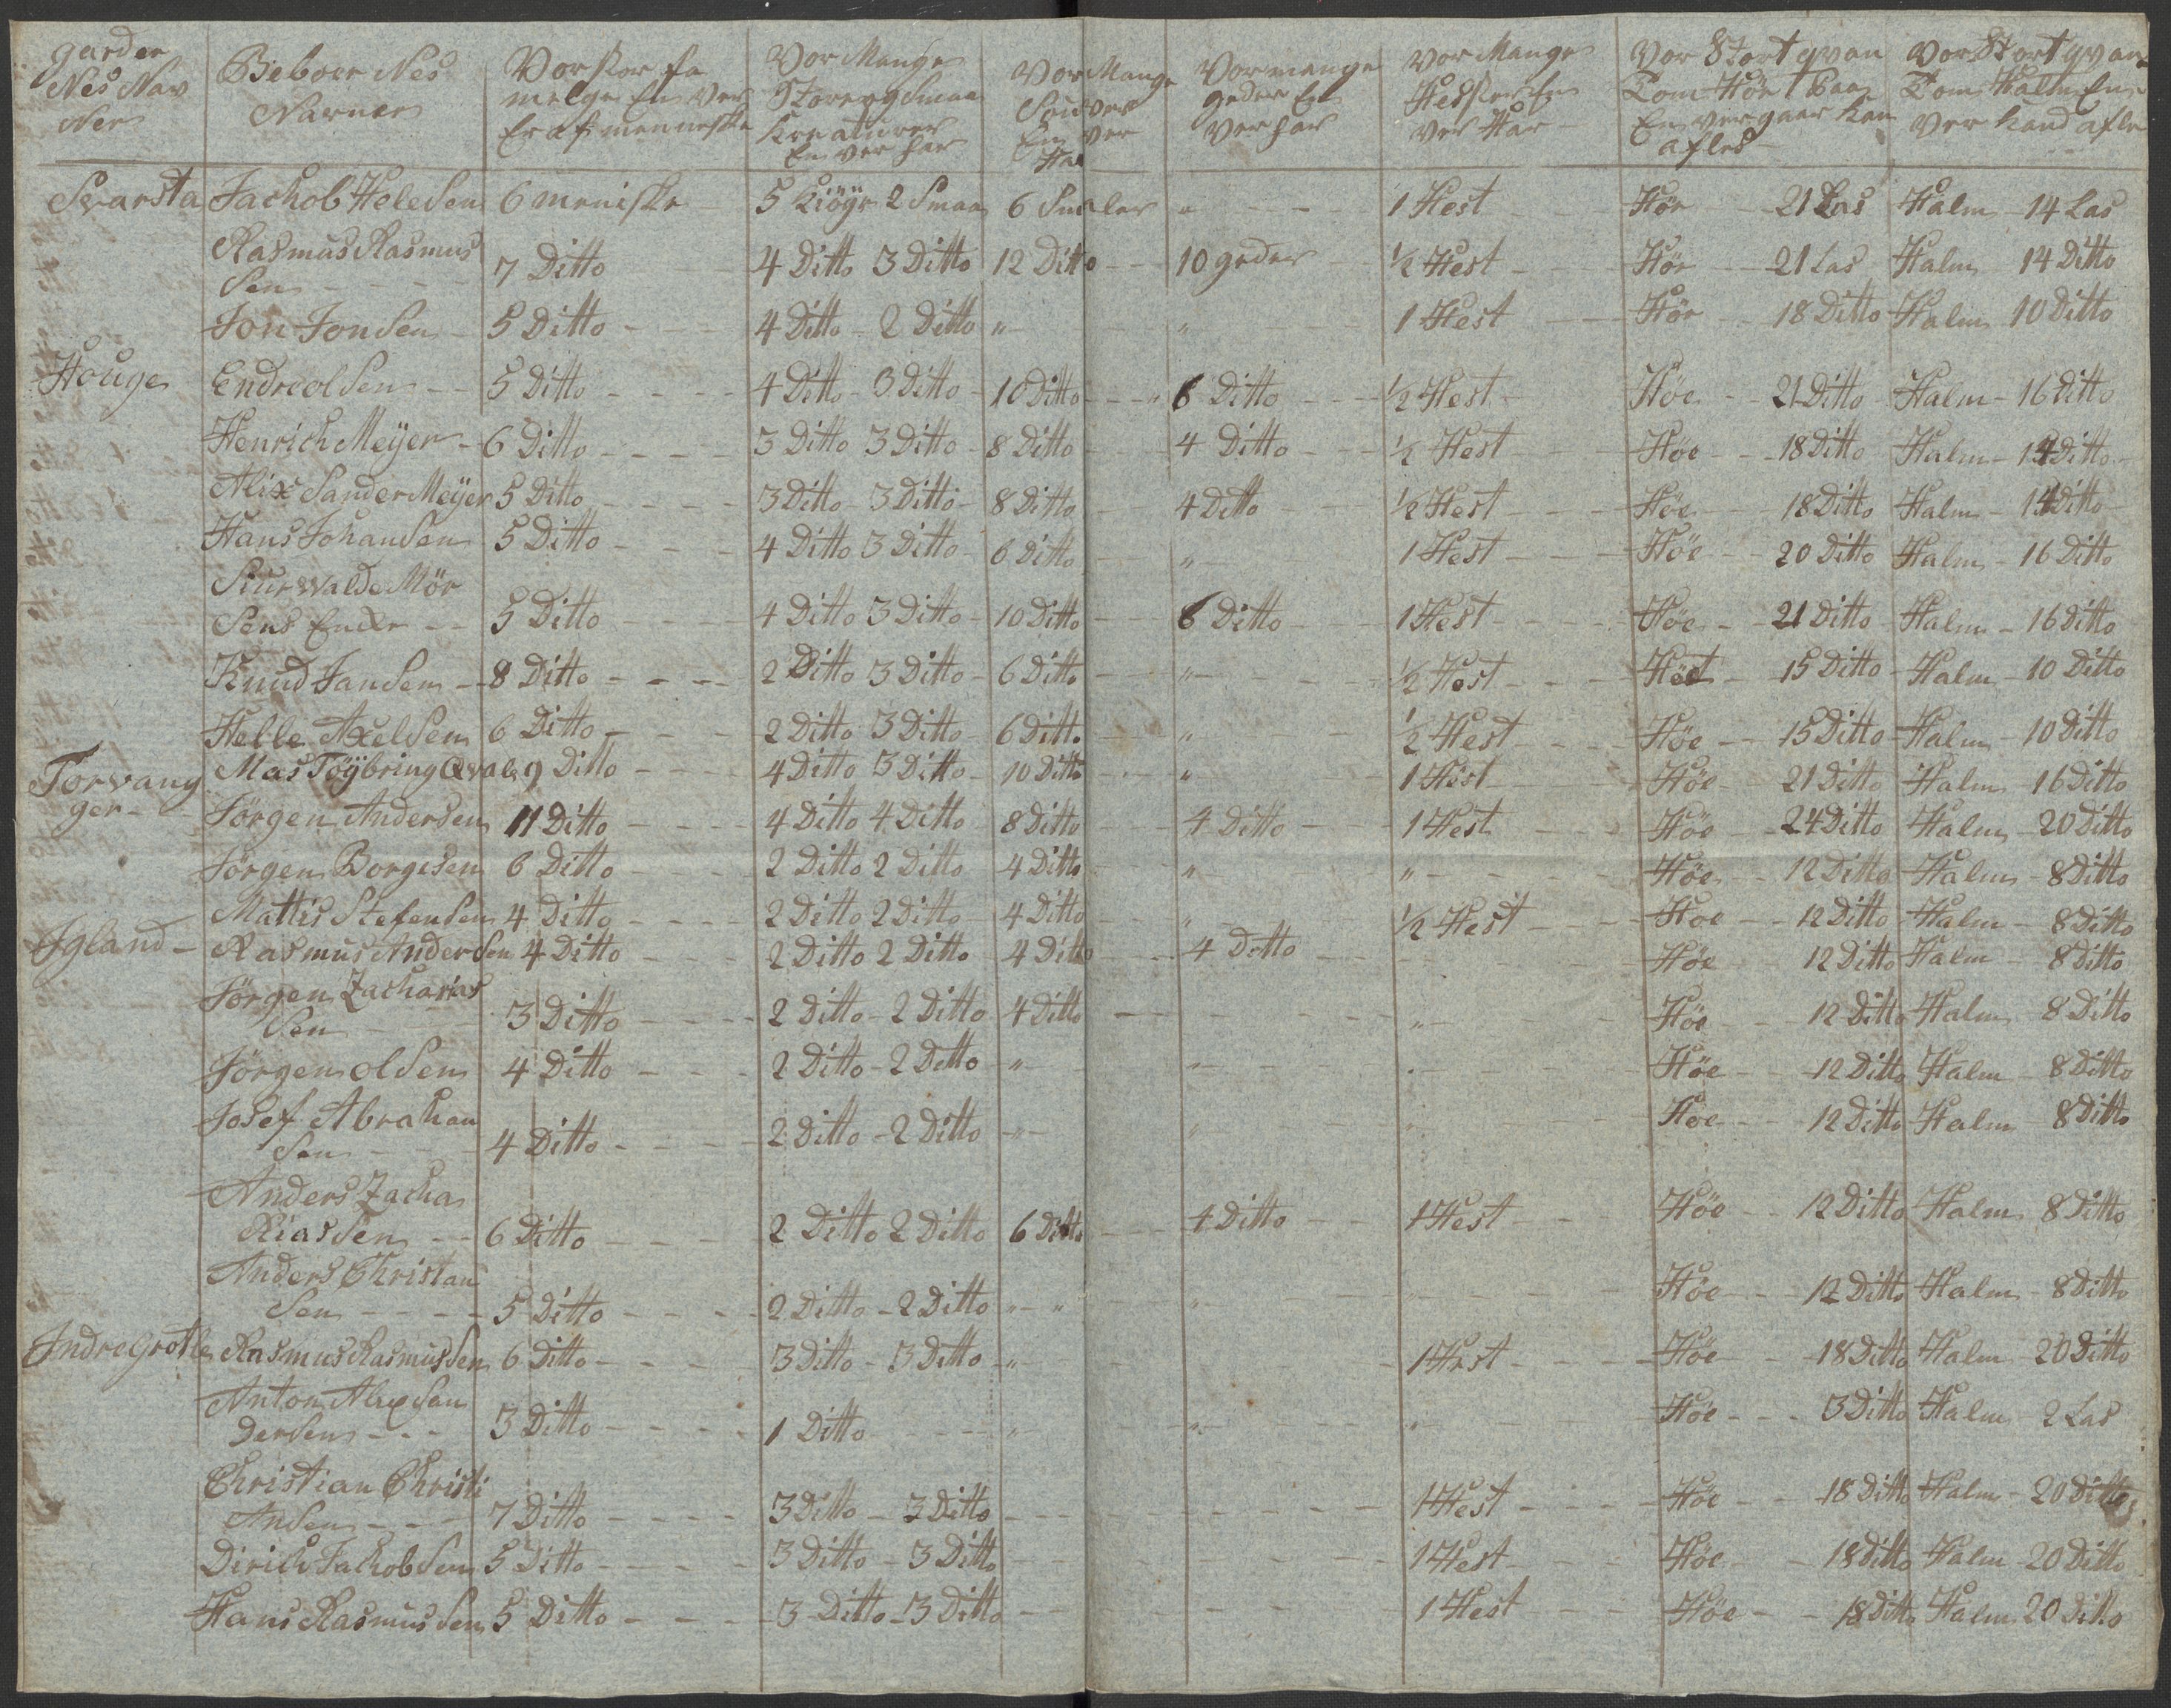 garder Nes Nav Ner | Beboer Nes Navner | Vor stor fa melge En ver Er af menneske | Vor Mange Store og Smaa Kreaturer En ver har | Vor Mange Souver En ver Har | Vor mange geder En ver har | Vor Mange Hester En ver Har | Vor Stort qvan Tom Hör Paa En ver gaar kan afles | Vor Stort qvan Tom Halm En ver kand afle
Svarsta | Jachob Helesen | 6 meniske | 5 Kiöyr 2 Smaa | 6 Smaler | " | 1 Hest | Hör 21 Las | Halm 14 Las
Rasmus Rasmus
Sen | 7 Ditto | 4 Ditto 3 Ditto | 12 Ditto | 10 geder | ½ Hest | Hör 21 Las | Halm 14 Ditto
Jon Jonsen | 5 Ditto | 4 Ditto 2 Ditto | " | " | 1 Hest | Hör 18 Ditto | Halm 10 Ditto
Houge | Endreolsen | 5 Ditto | 4 Ditto 3 Ditto | 10 Ditto | 6 Ditto | ½ Hest | Höe 21 Ditto | Halm 16 Ditto
Henrich Meijer | 6 Ditto | 3 Ditto 3 Ditto | 8 Ditto | 4 Ditto | ½ Hest | Höe 18 Ditto | Halm 14 Ditto
Alix Sander Meijer | 5 Ditto | 3 Ditto 3 Ditto | 8 Ditto | 4 Ditto | ½ Hest | Höe 18 Ditto | Halm 14 Ditto
Hans Johansen | 5 Ditto | 4 Ditto 3 Ditto | 6 Ditto | " | 1 Hest | Höe 20 Ditto | Halm 16 Ditto
Siurwalde Mör
Sens Encke | 5 Ditto | 4 Ditto 3 Ditto | 10 Ditto | 6 Ditto | 1 Hest | Höe 21 Ditto | Halm 16 Ditto
Knud Jansen | 8 Ditto | 2 Ditto 3 Ditto | 6 Ditto | " | ½ Hest | Höet 15 Ditto | Halm 10 Ditto
Helle Axelsen | 6 Ditto | 2 Ditto 3 Ditto | 6 Ditto | " | ½ Hest | Höe 15 Ditto | Halm 10 Ditto
Torvang | Mas Töybring Qvale | 9 Ditto | 4 Ditto 3 Ditto | 10 Ditto | " | 1 Hest | Höe 21 Ditto | Halm 16 Ditto
ger | Jörgen Andersen | 11 Ditto | 4 Ditto 4 Ditto | 8 Ditto | 4 Ditto | 1 Hest | Höe 24 Ditto | Halm 20 Ditto
Jörgen Borgesen | 6 Ditto | 2 Ditto 2 Ditto | 4 Ditto | " | " | Höe 12 Ditto | Halm 8 Ditto
Mattis Stefensen | 4 Ditto | 2 Ditto 2 Ditto | 4 Ditto | " | ½ Hest | Höe 12 Ditto | Halm 8 Ditto
Igland | Rasmus Andersen | 4 Ditto | 2 Ditto 2 Ditto | 4 Ditto | 4 Ditto | Höe 12 Ditto | Halm 8 Ditto
Jörgen Zacharias
Sen | 3 Ditto | 2 Ditto 2 Ditto | 4 Ditto | " | Höe 12 Ditto | Halm 8 Ditto
Jörgen olsen | 4 Ditto | 2 Ditto 2 Ditto | " | " | " | Höe 12 Ditto | Halm 8 Ditto
Josef Abraham
Sen | 4 Ditto | 2 Ditto 2 Ditto | " | " | " | Höe 12 Ditto | Halm 8 Ditto
Anders Zacha
Riassen | 6 Ditto | 2 Ditto 2 Ditto | 6 Ditto | 4 Ditto | 1 Hest | Höe 12 Ditto | Halm 8 Ditto
Anders Christan
Sen | 5 Ditto | 2 Ditto 2 Ditto | " " | " | " | Höe 12 Ditto | Halm 8 Ditto
Indre Grotle | Rasmus Rasmussen | 6 Ditto | 3 Ditto 3 Ditto | " | 1 Hest | Höe 18 Ditto | Halm 20 Ditto
Anton Alexsan
dersen | 3 Ditto | 1 Ditto | " | " | " | Höe 3 Ditto | Halm 2 Las
Christian Christi
Ansen | 7 Ditto | 3 Ditto 3 Ditto | 1 Hest | Höe 18 Ditto | Halm 20 Ditto
Dirich Jachobsen | 5 Ditto | 3 Ditto 3 Ditto | 1 Hest | Höe 18 Ditto | Halm 20 Ditto
Hans Rasmussen | 5 Ditto | 3 Ditto 3 Ditto | 1 Hest | Höe 18 Ditto | Halm 20 Ditto